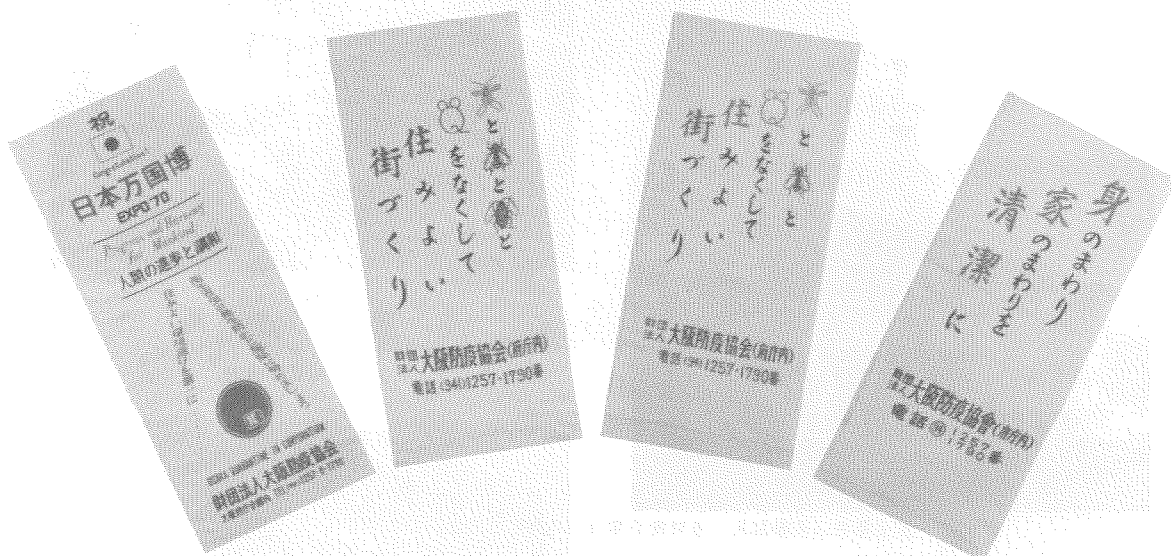 祝
Congratulations!
日本万国博
EXPO'70
Progress and Harmony
for Mankind
人類の進歩と調和
財団法人大阪防疫協会
とととと
をなくして
住みよい
街づくり
財団法人大阪防疫協会(府庁内)
電話(941)1257・1790番
とと
をなくして
住みよい
街づくり
財団法人大阪防疫協会(府庁内)
電話(941)1257・1790番
身のまわり
家のまわりを
清潔に
財団法人大阪防疫協會(府庁内)